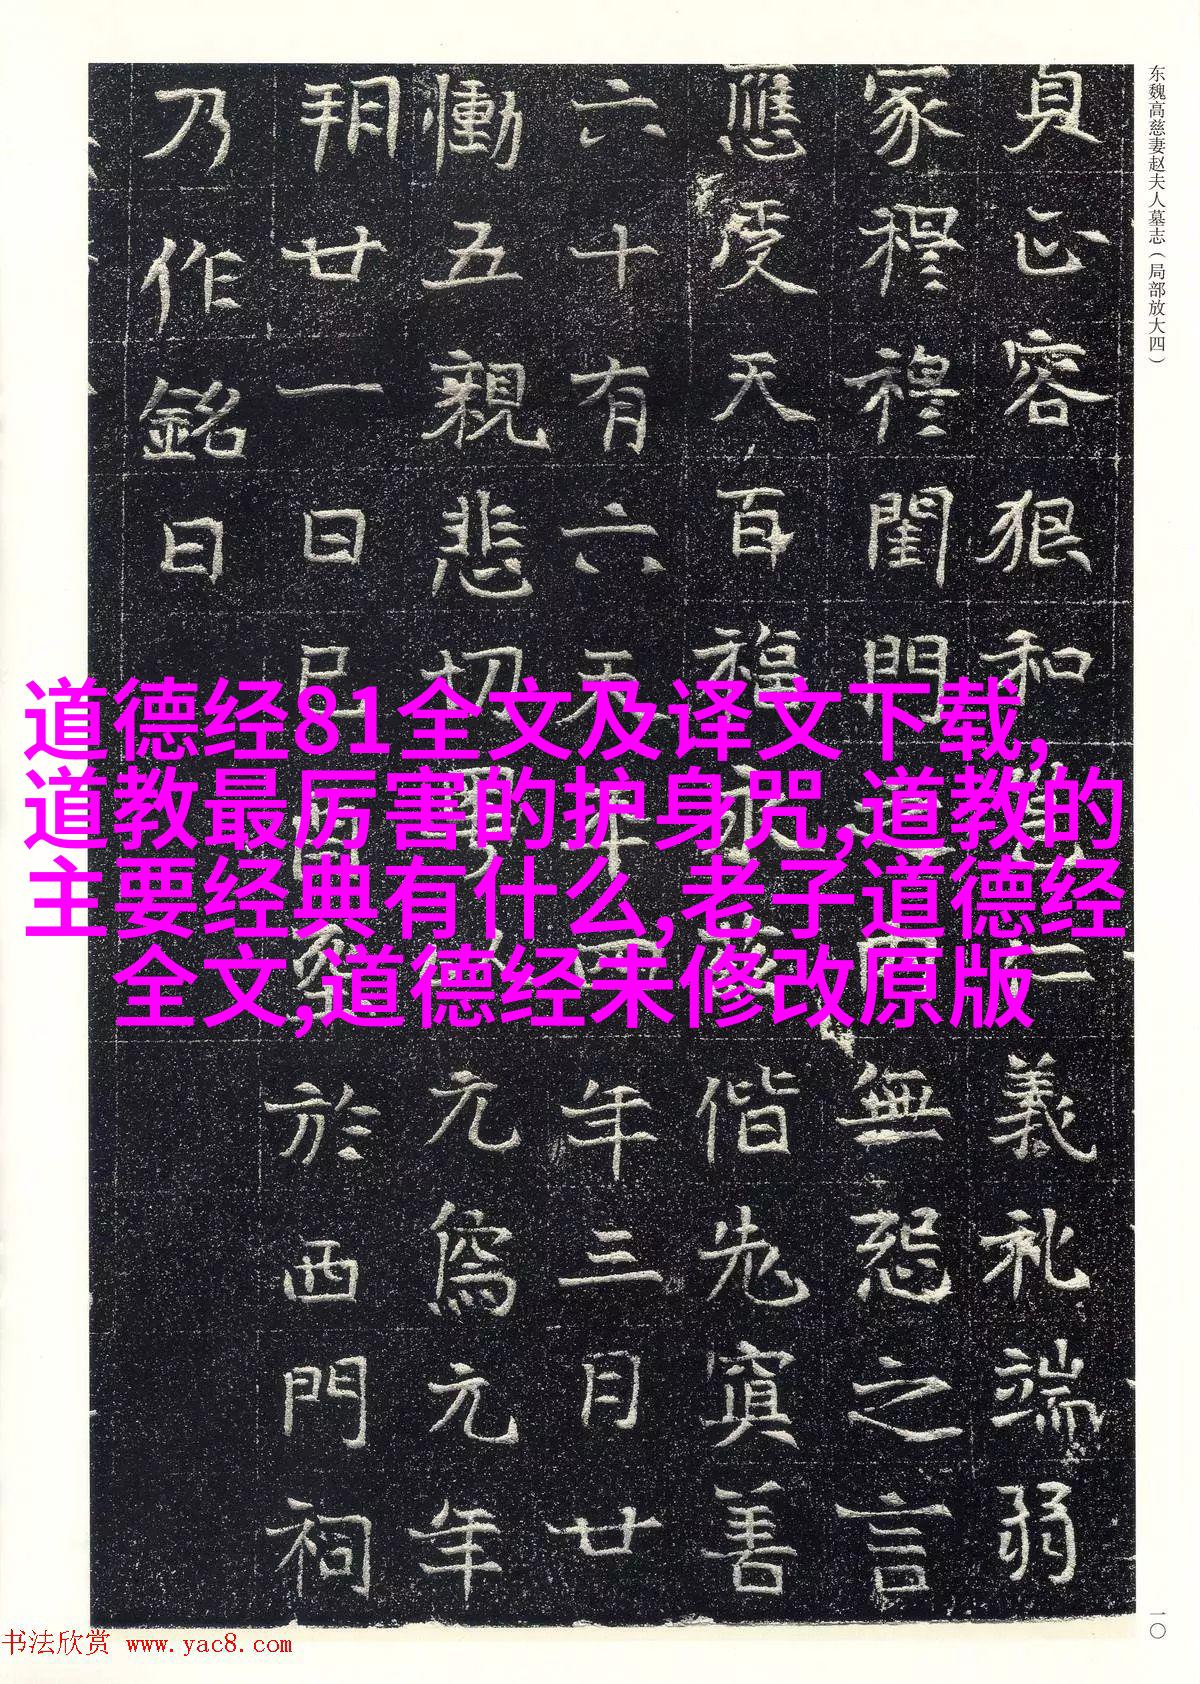 东魏高慈妻赵夫人墓志（局部放大四）
貞正容狠和義礼端弱
家穆穆閨門之内無怨之言
應受天百福永偕先寘善
六十有六天平四年三月廿
慟五親悲切粤以元象元年
朔廿一日己酉窆於西門祠
乃作銘曰
道德经81全文及译文下载,
道教最厉害的护身咒,道教的
主要经典有什么,老子道德经
全文,道德经未修改原版
一〇
书法欣赏 www.yac8.com